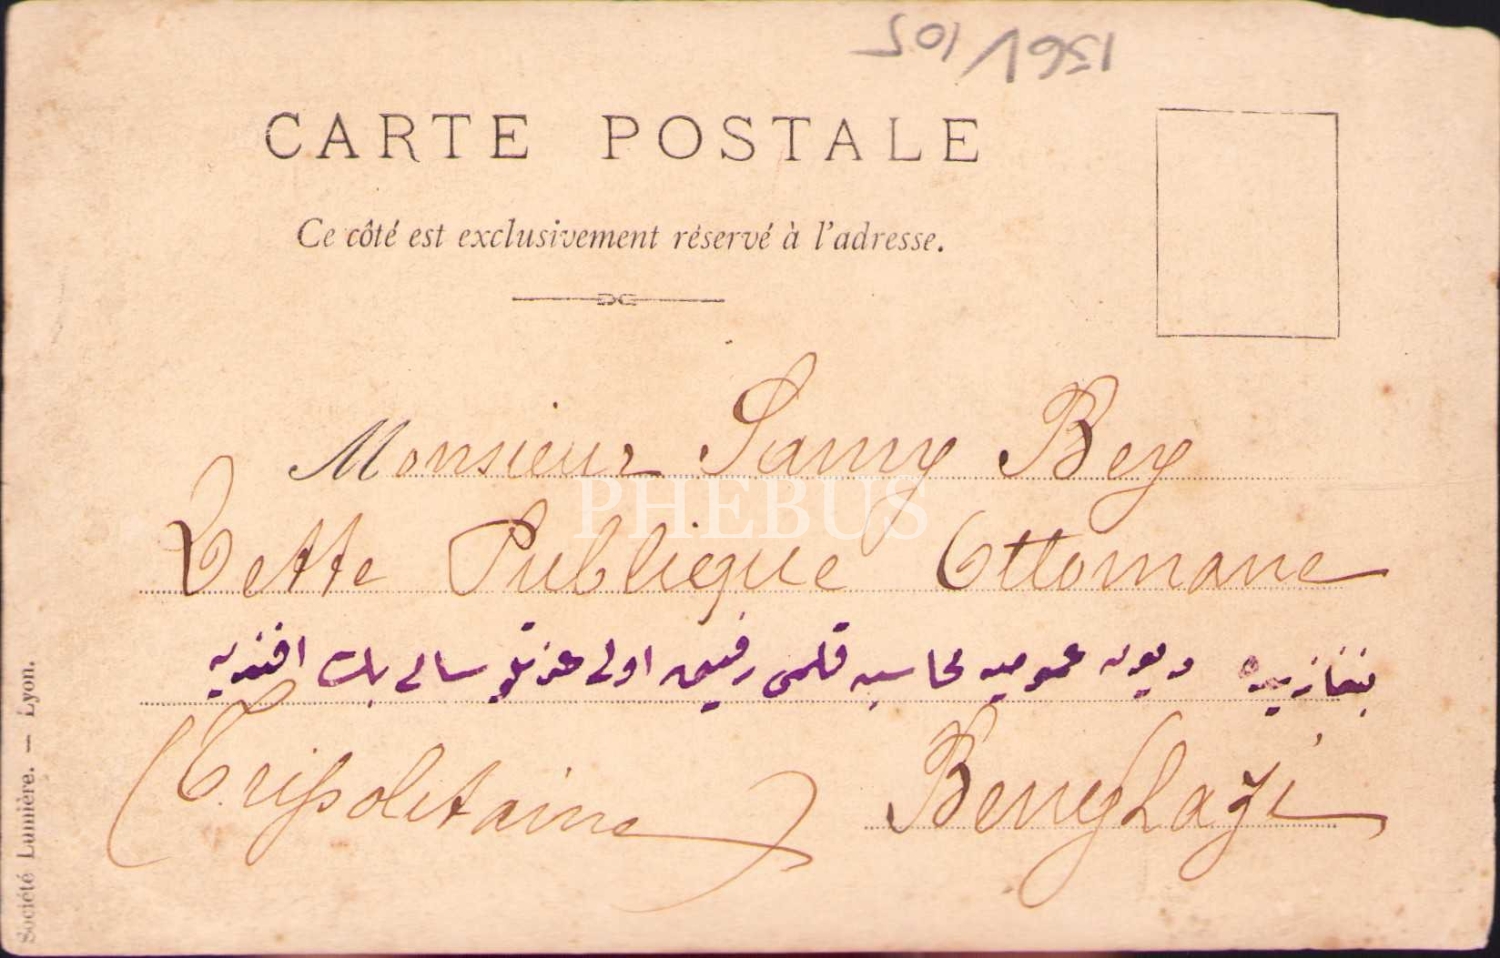 1361/105
CARTE POSTALE
Ce côté est exclusivement réservé à l'adresse.
Monsieur Samy Bey
PHEBUS
Dette Publique Ottomane
بنغازیده دیون عمومیه محاسبه قلمی رفیق اولی عزتلو سامی بك افندیه
(Tripolitaine) Benghazi
Société Lumière. — Lyon.